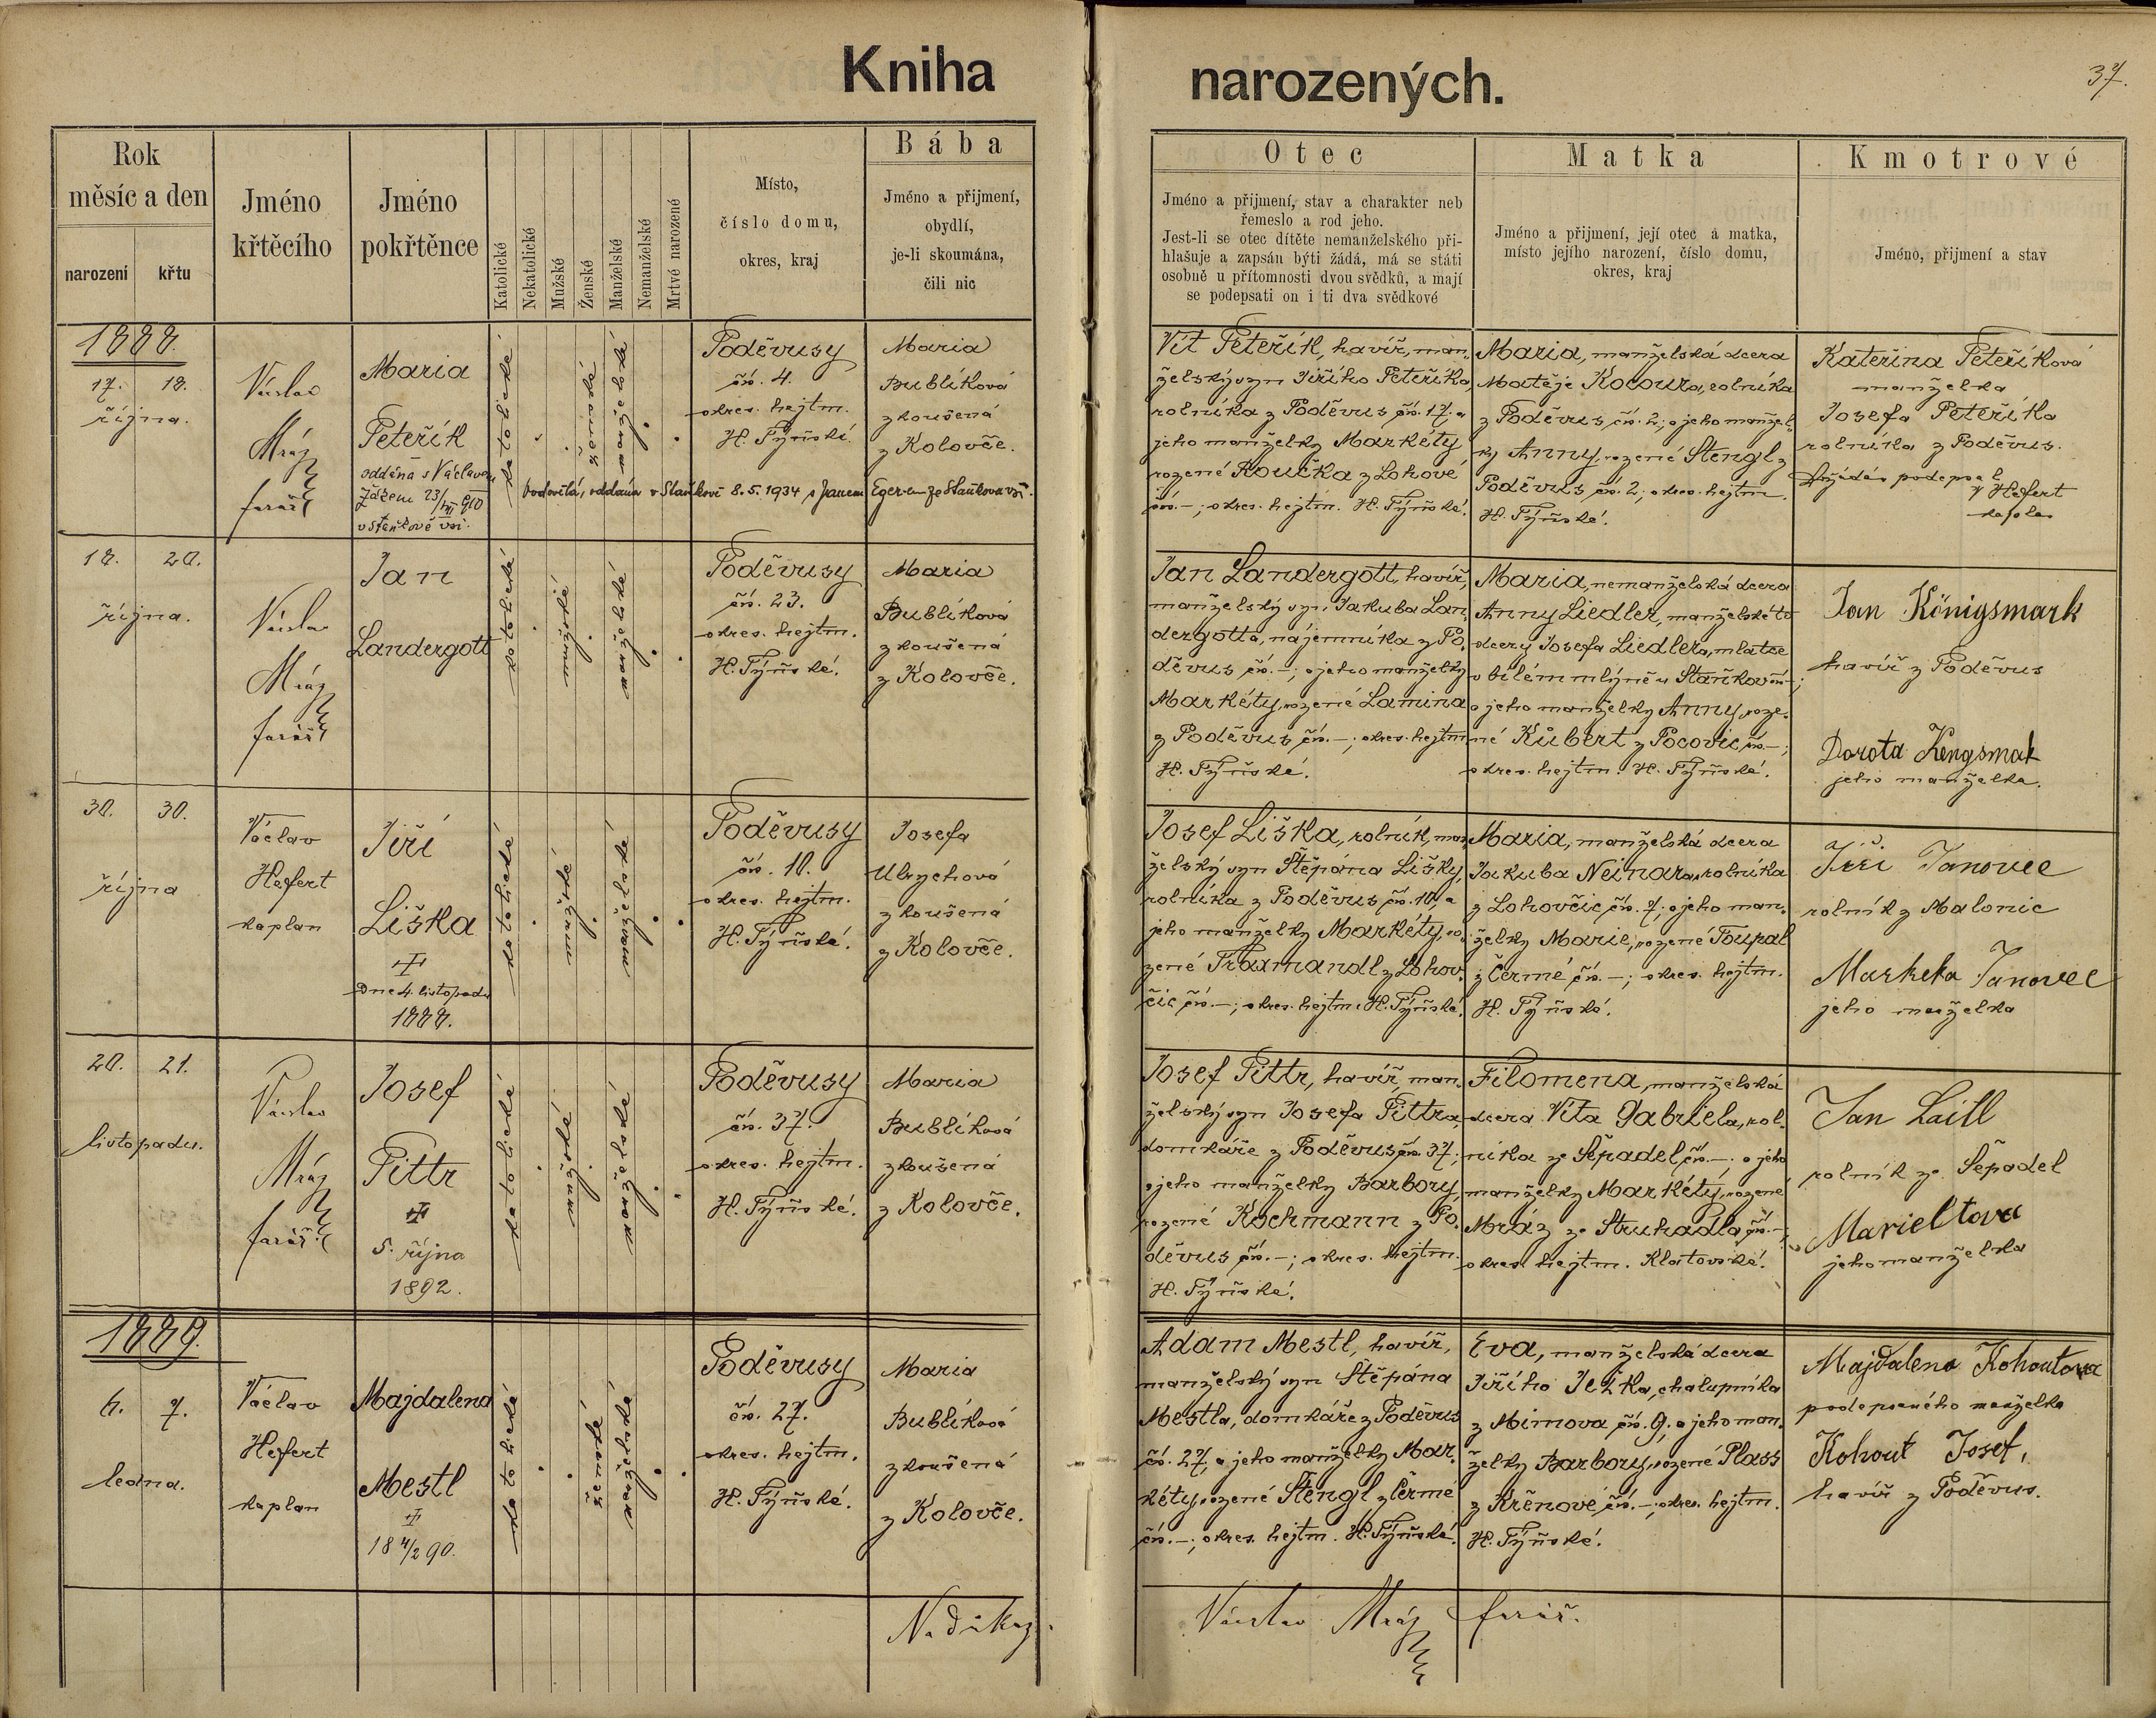 Kniha
narozených.
37.
Rok
měsíc a den
narození
křtu
Jméno
křtěcího
Jméno
pokřtěnce
Katolické
Nekatolické
Mužské
Ženské
Manželské
Nemanželské
Mrtvé narozené
Místo,
číslo domu,
okres, kraj
Bába
Jméno a přijmení,
obydlí,
je-li skoumána,
čili nic
Otec
Jméno a přijmení, stav a charakter neb
řemeslo a rod jeho.
Jest-li se otec dítěte nemanželského při-
hlašuje a zapsán býti žádá, má se státi
osobně u přítomnosti dvou svědků, a mají
se podepsati on i ti dva svědkové
Matka
Jméno a přijmení, její otec a matka,
místo jejího narození, číslo domu,
okres, kraj
Kmotrové
Jméno, přijmení a stav
1888.
17. 18.
října.
Václav
Mráz
farář
Maria
Peteřík
oddána s Václavem
v Staňkově vsi.
katolické
ženské
manželské
Poděvusy
čís. 4.
okres. hejtm.
H. Týnské.
Maria
Bublíková
zkoušená
z Kolovče.
ovdovělá, oddána v Staňkově 8.5.1934 s Janem Eger-em ze Staňkova vsi.
Vít Peteřík, havíř, man-
želský syn Jiřího Peteříka,
rolníka z Poděvus čís. 17. a
jeho manželky Markéty
rozené Koučka z Lohové
čís. –; okres. hejtm. H. Týnské.
Maria, manželská dcera
Matěje Kocoura, rolníka
z Poděvus, čís. 2; a jeho manžel-
ky Anny, rozené Stengl z
Poděvus čís. 2; okres. hejtm.
H. Týnské.
Kateřina Peteříková
manželka
Josefa Peteříka
rolníka z Poděvus.
podepsal
V Hefert
kaplan
18. 20.
října.
Václav
Mráz
farář
Jan
Landergott
katolické
mužské
manželské
Poděvusy
čís. 23.
okres. hejtm.
H. Týnské.
Maria
Bublíková
zkoušená
z Kolovče.
Jan Landergott, havíř,
manželský syn Jakuba Lan-
dergotta, nájemníka z Po-
děvus čís. –; a jeho manželky
Markéty, rozené Lamina
z Poděvus čís. –; okres. hejtm.
H. Týnské.
Maria, nemanželská dcera
Anny Liedler, manželské to
dcery Josefa Liedlera, mlatce
v bílém mlýně u Staňkov čís –;
a jeho manželky Anny, roze-
né Kubert z Pocovic čís. –;
okres. hejtm. H. Týnské.
Jan Königsmark
havíř z Poděvus
Dorota Kengsmak
jeho manželka.
30. 30.
října
Václav
Hefert
kaplan
Jiří
Liška
Dne 4. listopadu
1888.
katolické
mužské
manželské
Poděvusy
čís. 10.
okres. hejtm.
H. Týnské.
Josefa
Ulrychová
zkoušená
z Kolovče.
Josef Liška, rolník, man-
želský syn Štěpána Lišky,
rolníka z Poděvus čís. 10, a
jeho manželky Markéty, ro-
zené Traxmandl z Lohov-
čic čís. –; okres. hejtm. H. Týnské.
Maria, manželská dcera
Jakuba Neinara, rolníka
z Lohovčic čís. 7; a jeho man-
želky Marie, rozené Toupal
z Čermé čís. –; okres. hejtm.
H. Týnské.
Jiří Janovec
rolník z Malonic
Marketa Janovec
jeho manželka
20. 21.
listopadu.
Václav
Mráz
farář
Josef
Pittr
5. října
1892.
katolické
mužské
manželské
Poděvusy
čís. 37.
okres. hejtm.
H. Týnské.
Maria
Bublíková
zkoušená
z Kolovče.
Josef Pittr, havíř, man-
želský syn Josefa Pittra,
domkáře z Poděvus čís. 37;
a jeho manželky Barbory,
rozené Kochmann z Po-
děvus čís. –; okres. hejtm.
H. Týnské.
Filomena, manželská
dcera Víta Gabriela, rol-
níka ze Šepadel čís. –; a jeho
manželky Markéty, rozené
Mráz ze Struhadla čís. –;
okres. hejtm. Klatovské.
Jan Laitl
rolník ze Šepadel
jeho manželka
1889.
6. 7.
ledna.
Václav
Hefert
kaplan
Majdalena
Mestl
18 4/2 90.
katolické
ženské
manželské
Poděvusy
čís. 27.
okres. hejtm.
H. Týnské.
Maria
Bublíková
zkoušená
z Kolovče.
Adam Mestl, havíř,
manželský syn Štěpána
Mestla, domkáře z Poděvus
čís. 27, a jeho manželky Mar-
kéty, rozené Štengl z Čermé
čís. –; okres. hejtm. H. Týnské.
Eva, manželská dcera
Jiřího Ježka, chalupníka
z Mimova čís. 9; a jeho man-
želky Barbory, rozené Plass
z Křenové čís. –; okres. hejtm.
H. Týnské.
Majdalena Kohoutova
podepsaného manželka
Kohout Josef,
havíř z Poděvus.
Na důkaz.
Václav Mráz farář.